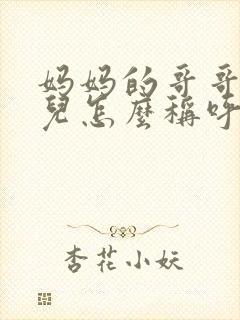 妈妈的哥哥
兒怎麼稱呼
杏花小妖